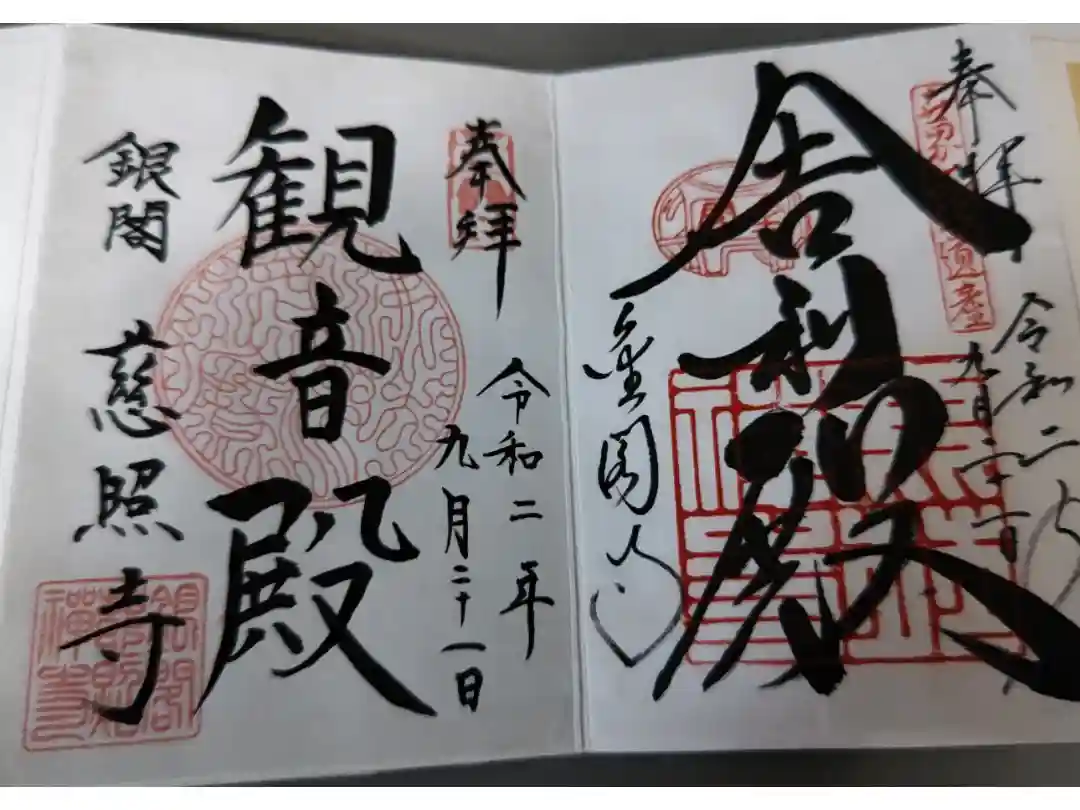 奉拝
令和二年
九月二十一日
舎利殿
金閣寺
奉拝
令和二年
九月二十一日
観音殿
銀閣 慈照寺